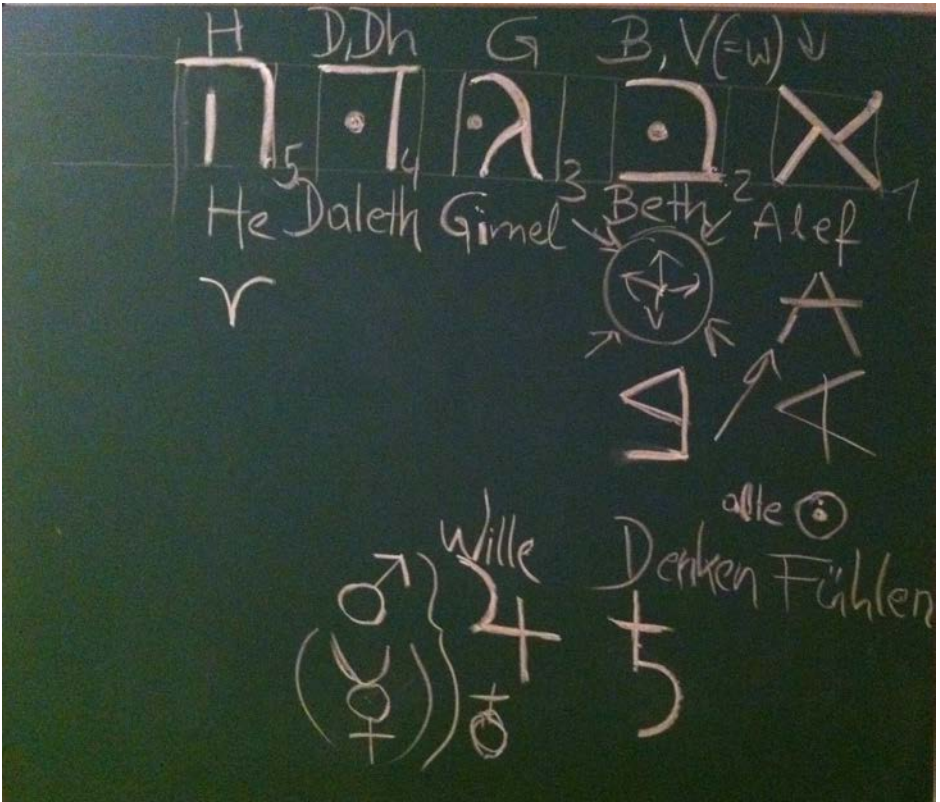 H D,Dh G B, V(=w)
ה דּ גּ בּ א
5 4 3 2 1
He Daleth Gimel Beth Alef
♈ A
alle
Wille Denken Fühlen
♂ ♃ ♄
(☿) ♁